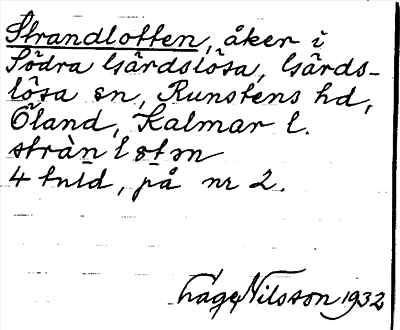 Strandlotten, åker i
Södra Gårdslösa, Gårds-
lösa sn, Runstens hd,
Öland, Kalmar l.
4 tnld, på nr 2.
Hage Nilsson 1932